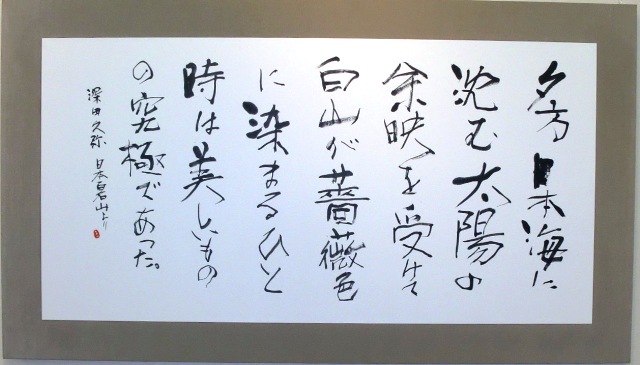 夕方 日本海に
沈む太陽の
余映を受けて
白山が薔薇色
に染まるひと
時は美しいもの
の究極であった。
深田久弥 日本百名山より